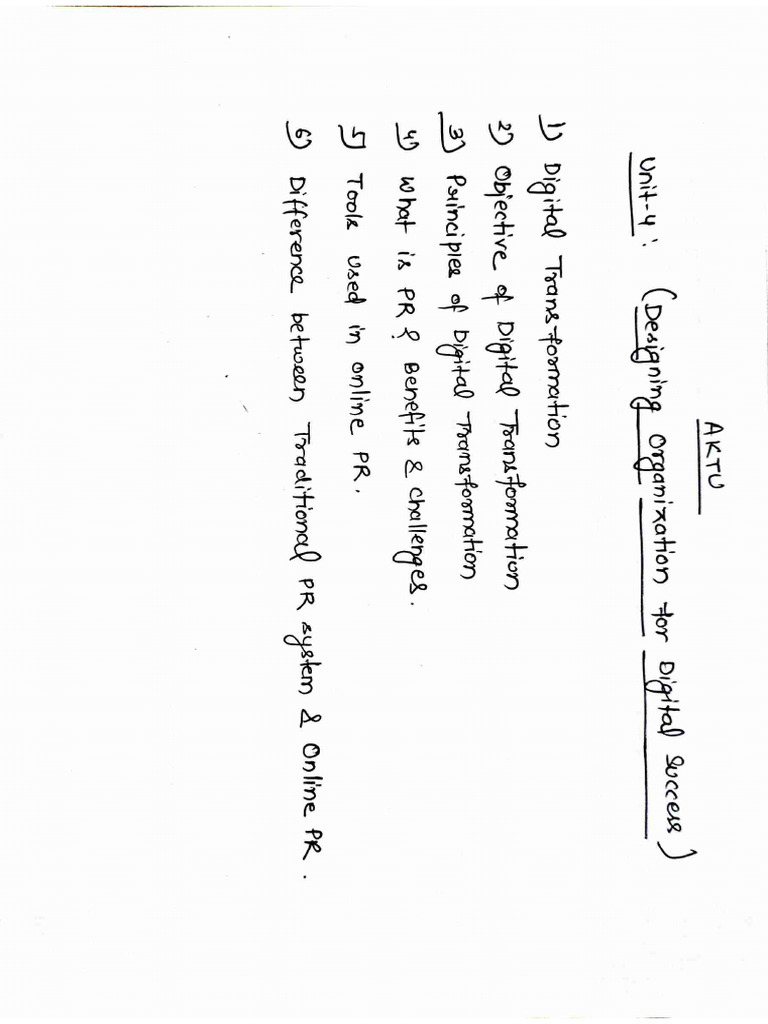 AKTU
Unit-4: (Designing Organization for Digital Success)
1) Digital Transformation
2) Objective of Digital Transformation
3) Principles of Digital Transformation
4) What is PR? Benefits & Challenges.
5) Tools used in online PR.
6) Difference between Traditional PR system & Online PR.